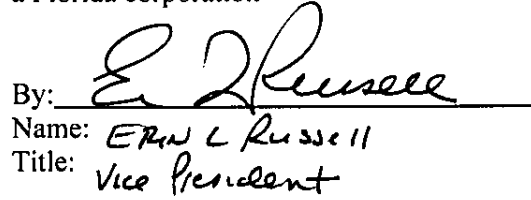 a Florida corporation
By: E L Russell
Name: ERIN L Russell
Title: Vice President